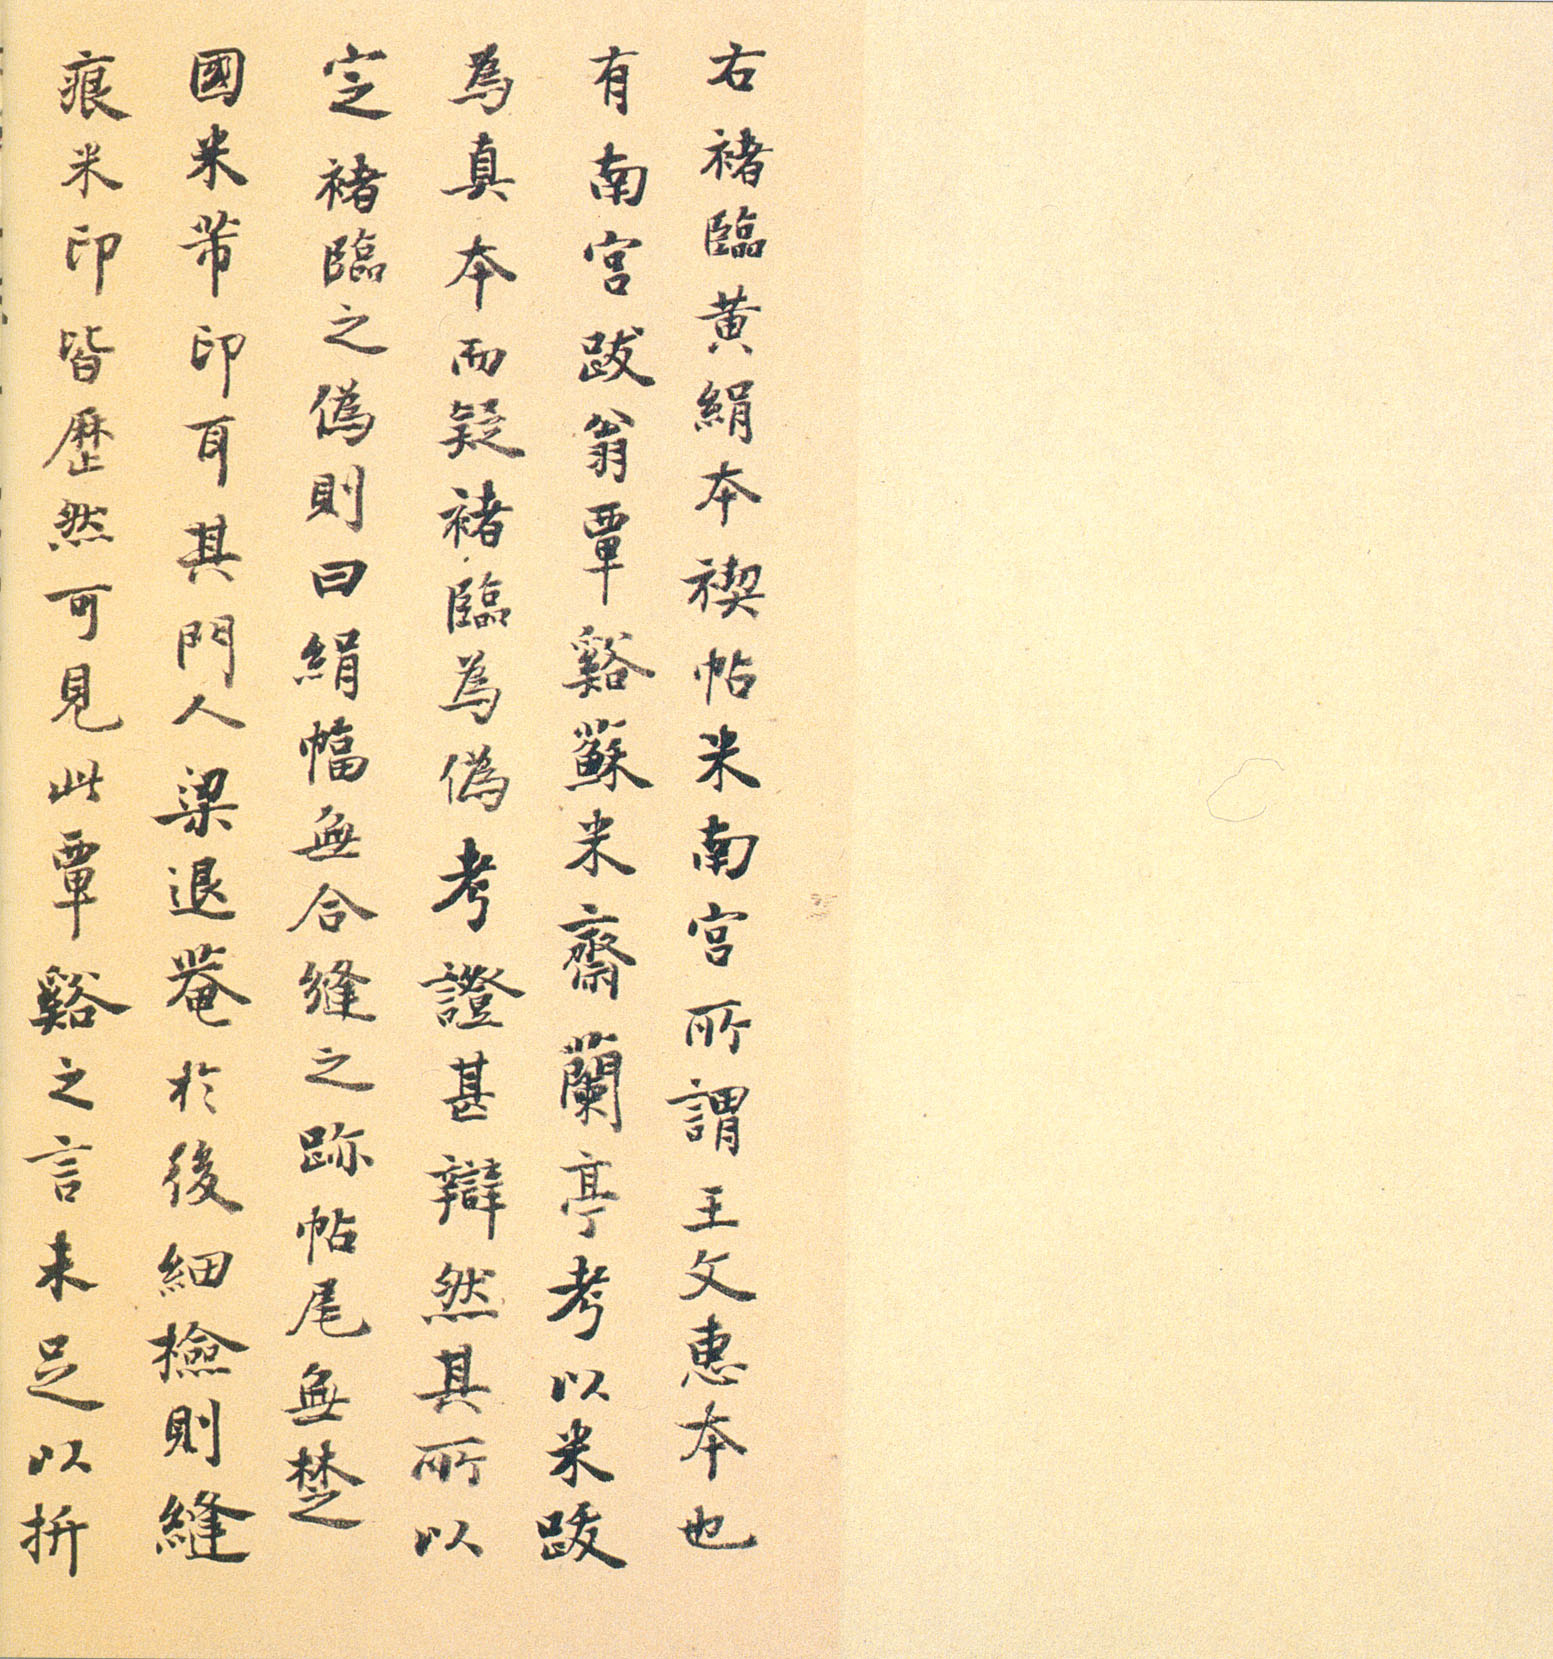 右褚臨黄絹本禊帖米南宮所謂王文惠本也
有南宮跋翁覃谿蘇米齋蘭亭考以米跋
為真本而疑褚臨為偽考證甚辯然其所以
定褚臨之偽則曰絹幅無合縫之跡帖尾無楚
國米芾印耳其門人梁退菴於後細撿則縫
痕米印皆歷然可見此覃谿之言未足以折